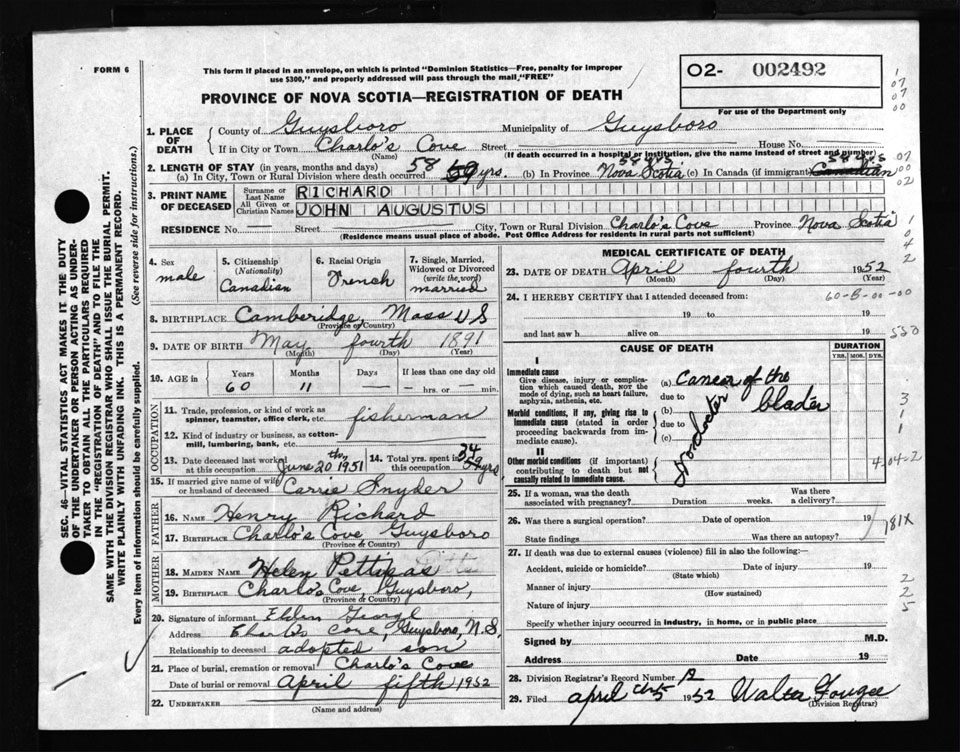 FORM 6
This form if placed in an envelope, on which is printed "Dominion Statistics—Free, penalty for improper
use $300," and properly addressed will pass through the mail, "FREE"
O2- 002492
For use of the Department only
PROVINCE OF NOVA SCOTIA—REGISTRATION OF DEATH
1. PLACE OF DEATH { County of Guysboro Municipality of Guysboro
If in City or Town Charlo's Cove Street House No.
(Name) (If death occurred in a hospital or institution, give the name instead of street and number)
2. LENGTH OF STAY (in years, months and days) 58 yrs.
(a) In City, Town or Rural Division where death occurred 58 59 yrs. (b) In Province Nova Scotia (c) In Canada (if immigrant) Canadian
3. PRINT NAME OF DECEASED { Surname or Last Name RICHARD
All Given or Christian Names JOHN AUGUSTUS
RESIDENCE No. — Street — City, Town or Rural Division Charlo's Cove Province Nova Scotia
(Residence means usual place of abode. Post Office Address for residents in rural parts not sufficient)
4. Sex male
5. Citizenship (Nationality) Canadian
6. Racial Origin French
7. Single, Married, Widowed or Divorced (write the word) married
8. BIRTHPLACE Camberidge, Mass U S
(Province or Country)
9. DATE OF BIRTH May fourth 1891
(Month) (Day) (Year)
10. AGE in { Years 60 Months 11 Days — If less than one day old — hrs. or — min.
OCCUPATION
11. Trade, profession, or kind of work as spinner, teamster, office clerk, etc. fisherman
12. Kind of industry or business, as cotton-mill, lumbering, bank, etc.
13. Date deceased last worked at this occupation June 20th 1951
14. Total yrs. spent in this occupation 34 59 yrs
15. If married give name of wife or husband of deceased Carrie Snyder
FATHER
16. NAME Henry Richard
17. BIRTHPLACE Charlo's Cove, Guysboro
(Province or Country)
MOTHER
18. MAIDEN NAME Helen Pettipas
19. BIRTHPLACE Charlo's Cove, Guysboro,
(Province or Country)
20. Signature of informant
Address Charlo's Cove, Guysboro, N.S.
Relationship to deceased adopted son
21. Place of burial, cremation or removal Charlo's Cove
Date of burial or removal April fifth 1952
22. UNDERTAKER
(Name and address)
MEDICAL CERTIFICATE OF DEATH
23. DATE OF DEATH April fourth 1952
(Month) (Day) (Year)
24. I HEREBY CERTIFY that I attended deceased from: 60-B-00-00
19 to 19
and last saw h alive on 19 550
CAUSE OF DEATH
DURATION
YRS. MOS. DYS.
I
Immediate cause
Give disease, injury or complication which caused death, NOT the mode of dying, such as heart failure, asphyxia, asthenia, etc.
(a) Cancer of the blader
due to
Morbid conditions, if any, giving rise to immediate cause (stated in order proceeding backwards from immediate cause).
(b)
due to
(c)
no doctor
II
Other morbid conditions (if important) contributing to death but not causally related to immediate cause.
4-04-2
25. If a woman, was the death associated with pregnancy? Duration weeks. Was there a delivery?
26. Was there a surgical operation? Date of operation 19
State findings Was there an autopsy?
181X
27. If death was due to external causes (violence) fill in also the following:—
Accident, suicide or homicide? Date of injury 19
(State which)
Manner of injury
(How sustained)
Nature of injury
Specify whether injury occurred in industry, in home, or in public place
Signed by M.D.
Address Date 19
28. Division Registrar's Record Number A
29. Filed april th 5 1952 Walter Fougee
(Division Registrar)
SEC. 46—VITAL STATISTICS ACT MAKES IT THE DUTY
OF THE UNDERTAKER OR PERSON ACTING AS UNDER-
TAKER TO OBTAIN ALL THE PARTICULARS REQUIRED
IN THE "REGISTRATION OF DEATH" AND TO FILE THE
SAME WITH THE DIVISION REGISTRAR WHO SHALL ISSUE THE BURIAL PERMIT.
WRITE PLAINLY WITH UNFADING INK. THIS IS A PERMANENT RECORD.
Every item of Information should be carefully supplied. (See reverse side for instructions.)